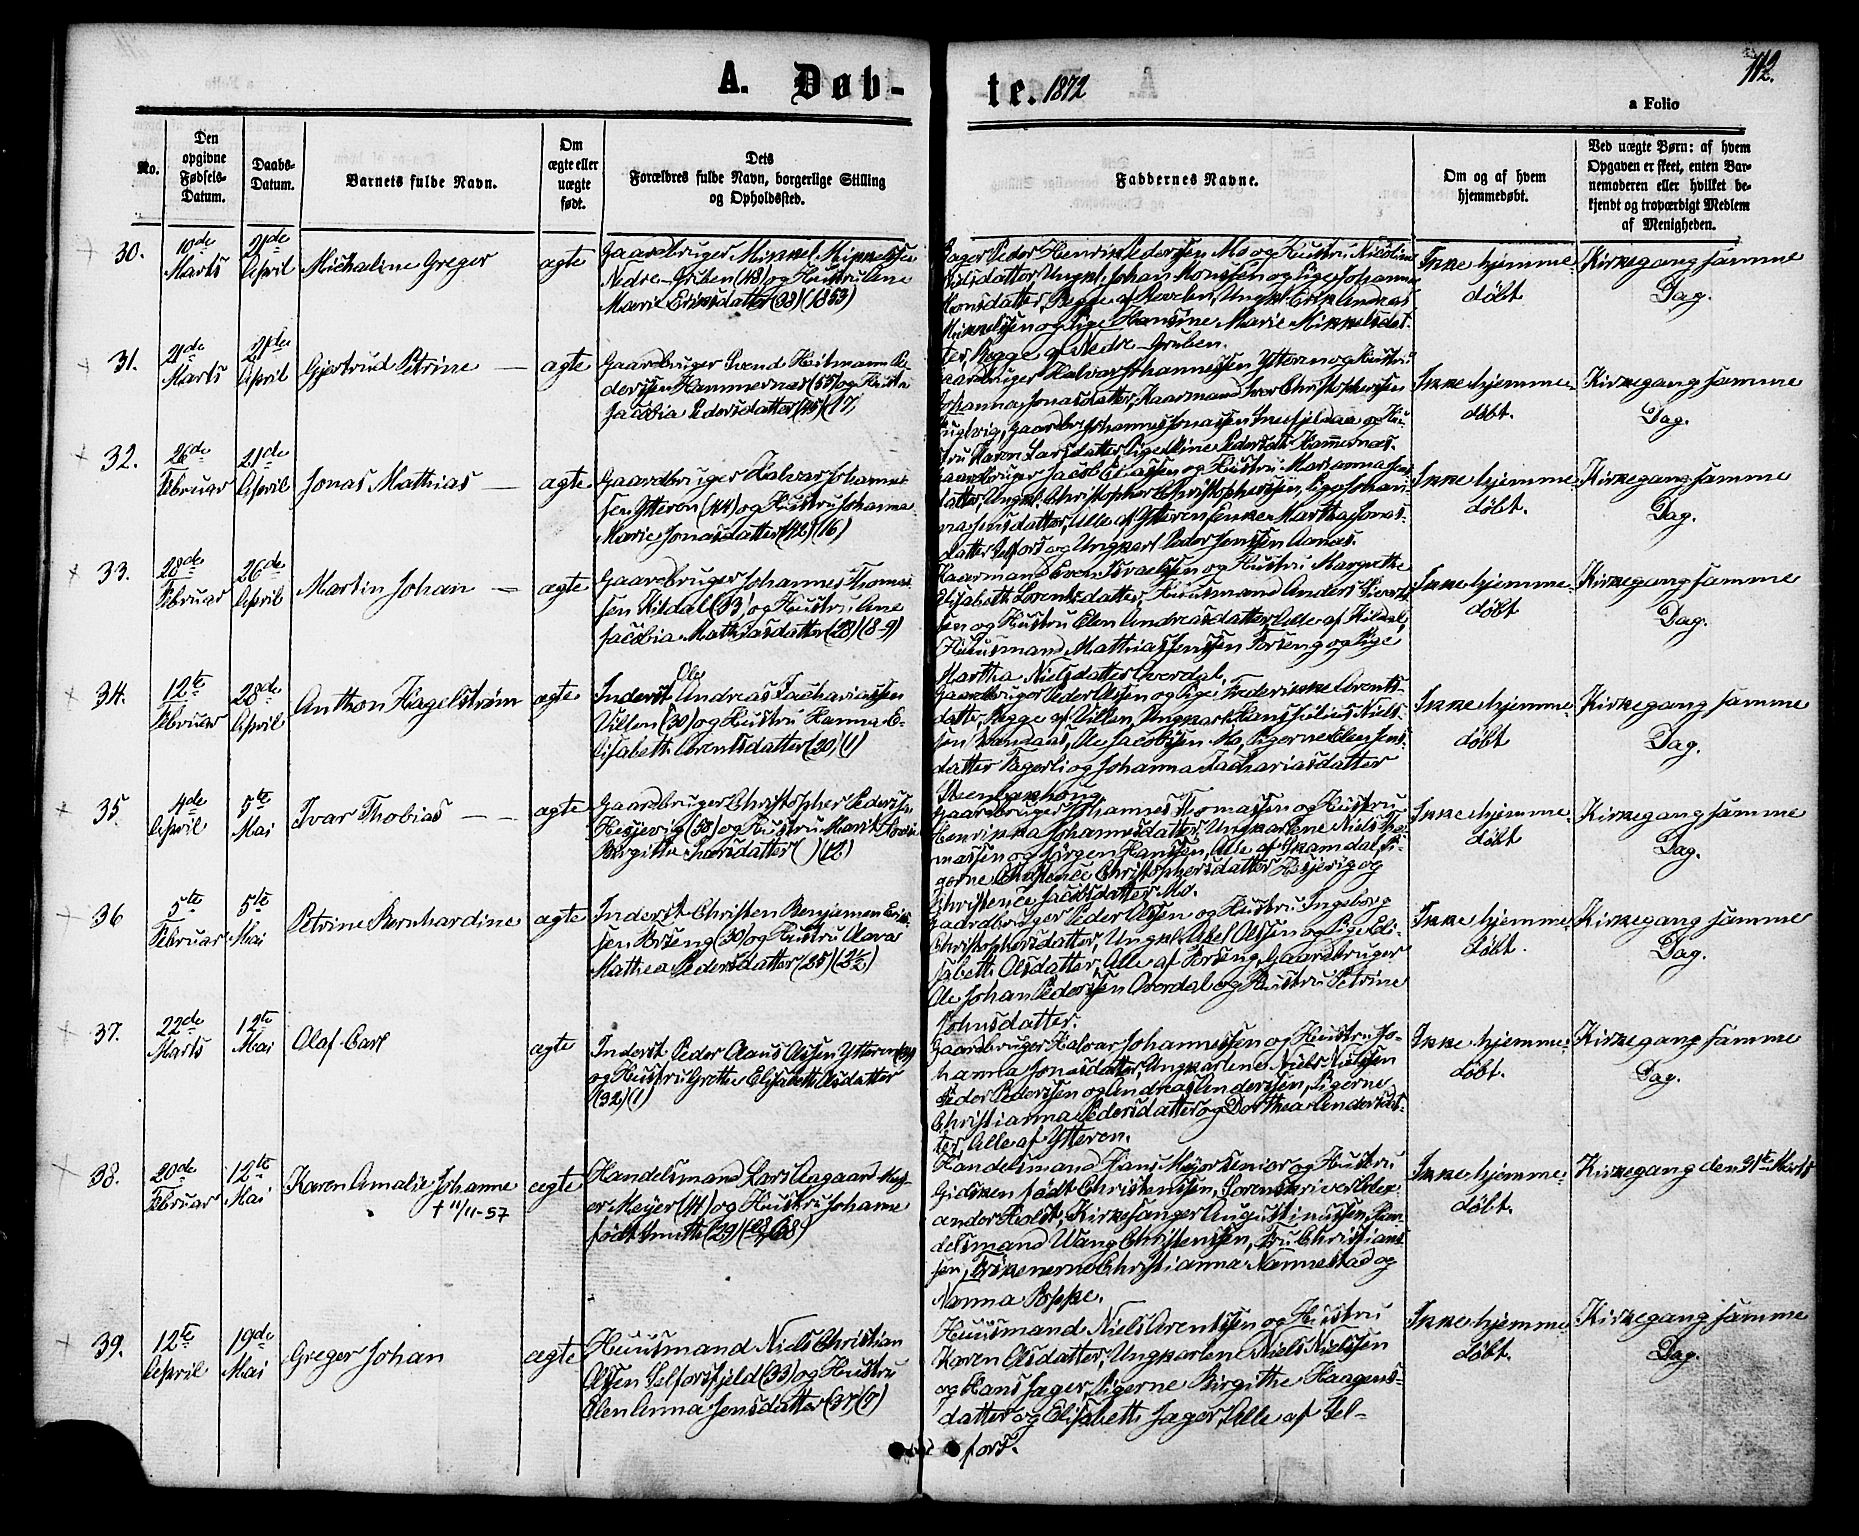 A. Døb-te. 1872
112.
a Folio
No.
Den opgivne Fødsels-Datum.
Daabs-Datum.
Barnets fulde Navn.
Om ægte eller uægte født.
Dets Forældres fulde Navn, borgerlige Stilling og Opholdssted.
Faddernes Navne.
Om og af hvem hjemmedøbt.
Ved uægte Børn: af hvem Opgaven er skeet, enten Barnemoderen eller hvilket bekjendt og troværdigt Medlem af Menigheden.
30.
10de Marts
21de April
Michaline Greger
ægte
Gaardbruger Mikkel Mikkelsen
Nedre-Gruben (48) og Hustru Ane
Marie Eriksdatter (38) (1853)
Jager Peder Henrik Pederssen Mo og Hustru Nicoline
Nilsdatter, Ungkl. Johan Monssen og Pige Johanna
Monsdatter, Begge af Ungkl. Erik Andreas
Mikkelssen og Pige Hansine Marie Mikkelsdat-
ter, Begge af Nedre-Gruben.
Ikke hjemme-
døbt
Kirkegang samme
Dag.
31.
21de Marts
21de April
Gjertrud Petrine
ægte
Gaardbruger Svend Heitmann Pe-
derssen Hammernæs (55) og Hustru
Jacobia Pedersdatter (45) (17)
Gaardbruger Halvar Johannessen Ytteren og Hustru
Johanna Jonasdatter, Kaarmand Iver Christophersen
Fuglvig, Gaardbr. Johannes Jonassen Snefjeldaa og Hu-
stru Karen Larsdatter, Pige Pedersdtr. Hammernæs.
Ikke hjemme-
døbt.
Kirkegang samme
Dag.
32.
26de Februar
21de April
Jonas Mathias
ægte
Gaardbruger Halvar Johannes-
sen Ytteren (44) og Hustru Johanna
Marie Jonasdatter (42) (16)
Gaardbruger Jacob og Hustru Marianna Jens-
datter, Ungkl. Christopher Christopherssen, Pige Johan-
na Jensdatter, Alle af Ytteren, Enke Martha Jonas-
datter Selfors og Ungkarl Peder Jenssen Aanæs.
Ikke hjemme-
døbt.
Kirkegang samme
Dag.
33.
28de Februar
26de April
Martin Johan
ægte
Gaardbruger Johannes Thomas-
sen Kildal (33) og Hustru Ane
Jacobia Mathiasdatter (28) (8-9)
Kaarmand Even Israelssen og Hustru Margrethe
Elisabeth Lorentsdatter, Huusmand Anders Siverts-
sen og Hustru Elen Andreasdatter, Alle af Kildal,
Huusmand Mathias Jenssen Forseng og Pige
Martha Nielsdatter Overdal.
Ikke hjemme-
døbt
Kirkegang samme
Dag.
34.
12te Februar
28de April
Anthon Hagelstrøm
ægte
Inderst Ole Andreas Zachariassen
Villen (30) og Hustru Hanna E-
lisabeth Arentsdatter (20) (1)
Gaardbruger Peder Olssen og Pige Frederikke Arents-
datter, Begge af Villen, Ungkarl Hans Julius Niels-
sen Ole Jacobssen Mo, Pigerne Elen Jens-
datter Fagerli og Johanna Zachariasdatter
Stenbækhøug
Ikke hjemme-
døbt
Kirkegang samme
Dag.
35.
4de April
5te Mai
Ivar Thobias
ægte
Gaardbruger Christopher Pederssen
Hesjevig (38) og Hustru Marit
Birgitte Ivarsdatter ( ) (12)
Gaardbruger Johannes Thomassen og Hustru
Henrikka Johannesdatter, Ungkarlene Niels Tho-
massen og Jørgen Hanssen, Alle af Skamdal, Pi-
gerne Christence Christophersdatter Hesjevig og
Christence Jacobsdatter, Mo.
Ikke hjemme-
døbt
Kirkegang samme
Dag.
36
5te Februar
5te Mai
Petrine Bernhardine
ægte
Inderst Christen Benjamen Eriks-
sen Forseng (30) og Hustru Olava
Mathea Pedersdatter (25) (2½)
Gaardbruger Peder Olssen og Hustru Ingeborg
Christophersdatter, Ungkl. Abel Olssen og Pige Eli-
sabeth Olsdatter, Alle af Forseng, Gaardbruger
Ole Johan Pederssen Overdal og Hustru Petrine
Johnsdatter.
Ikke hjemme-
døbt.
Kirkegang samme
Dag.
37.
22de Marts
12te Mai
Olaf Carl
ægte
Inderst Peder Olaus Olssen Ytteren
og Hustru Grethe Elisabeth Olsdatter
(32) (1)
Gaardbruger Halvar Johannessen og Hustru Jo-
hanna Jonasdatter, Ungkarlene Niels Nielssen
Peder Pederssen og Andreas Anderssen, Pigerne
Christianna Pedersdatter og Dorthea Andersdat-
ter, Alle af Ytteren.
Ikke hjemme-
døbt.
Kirkegang samme
Dag.
38.
20de Februar
12te Mai
Karen Amalie Johanne
† 11/11-57
ægte
Handelsmand Lars Aagaard Mey-
er Meyer (41) og Hustru Johanne
født Smith (29) (68)
Handelsmand Hans Meyer senior og Hustru
Gidsken født Christenssen, Sorenskriver Alex-
ander Holst, Kirkesanger Augustinussen, Han-
delsmand Wang Christenssen, Fru Christians-
sen, Frøknerne Christianna Nannestad og
Nanna Poppe.
Ikke hjemme-
døbt.
Kirkegang den 31te Marts
39.
12te April
19de Mai
Greger Johan
ægte
Huusmand Niels Christian
Olssen Selforsfjeld (33) og Hustru
Elen Anna Jensdatter (37) (7)
Huusmand Niels Arentssen og Hustru
Karen Olsdatter, Ungkarlene Niels Nielssen
og Hans Jager, Pigerne Birgithe Haagens-
datter og Elisabeth Jager, Alle af Sel-
fors.
Ikke hjemme-
døbt.
Kirkegang samme
Dag.